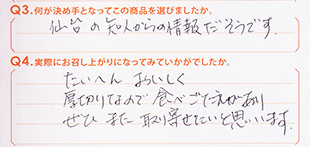 Q3.何が決め手となってこの商品を選びましたか。
仙台の知人からの情報だそうです。
Q4.実際にお召し上がりになってみていかがでしたか。
たいへん おいしく
厚切りなので 食べごたえがあり
ぜひ また 取り寄せたいと思いいます。